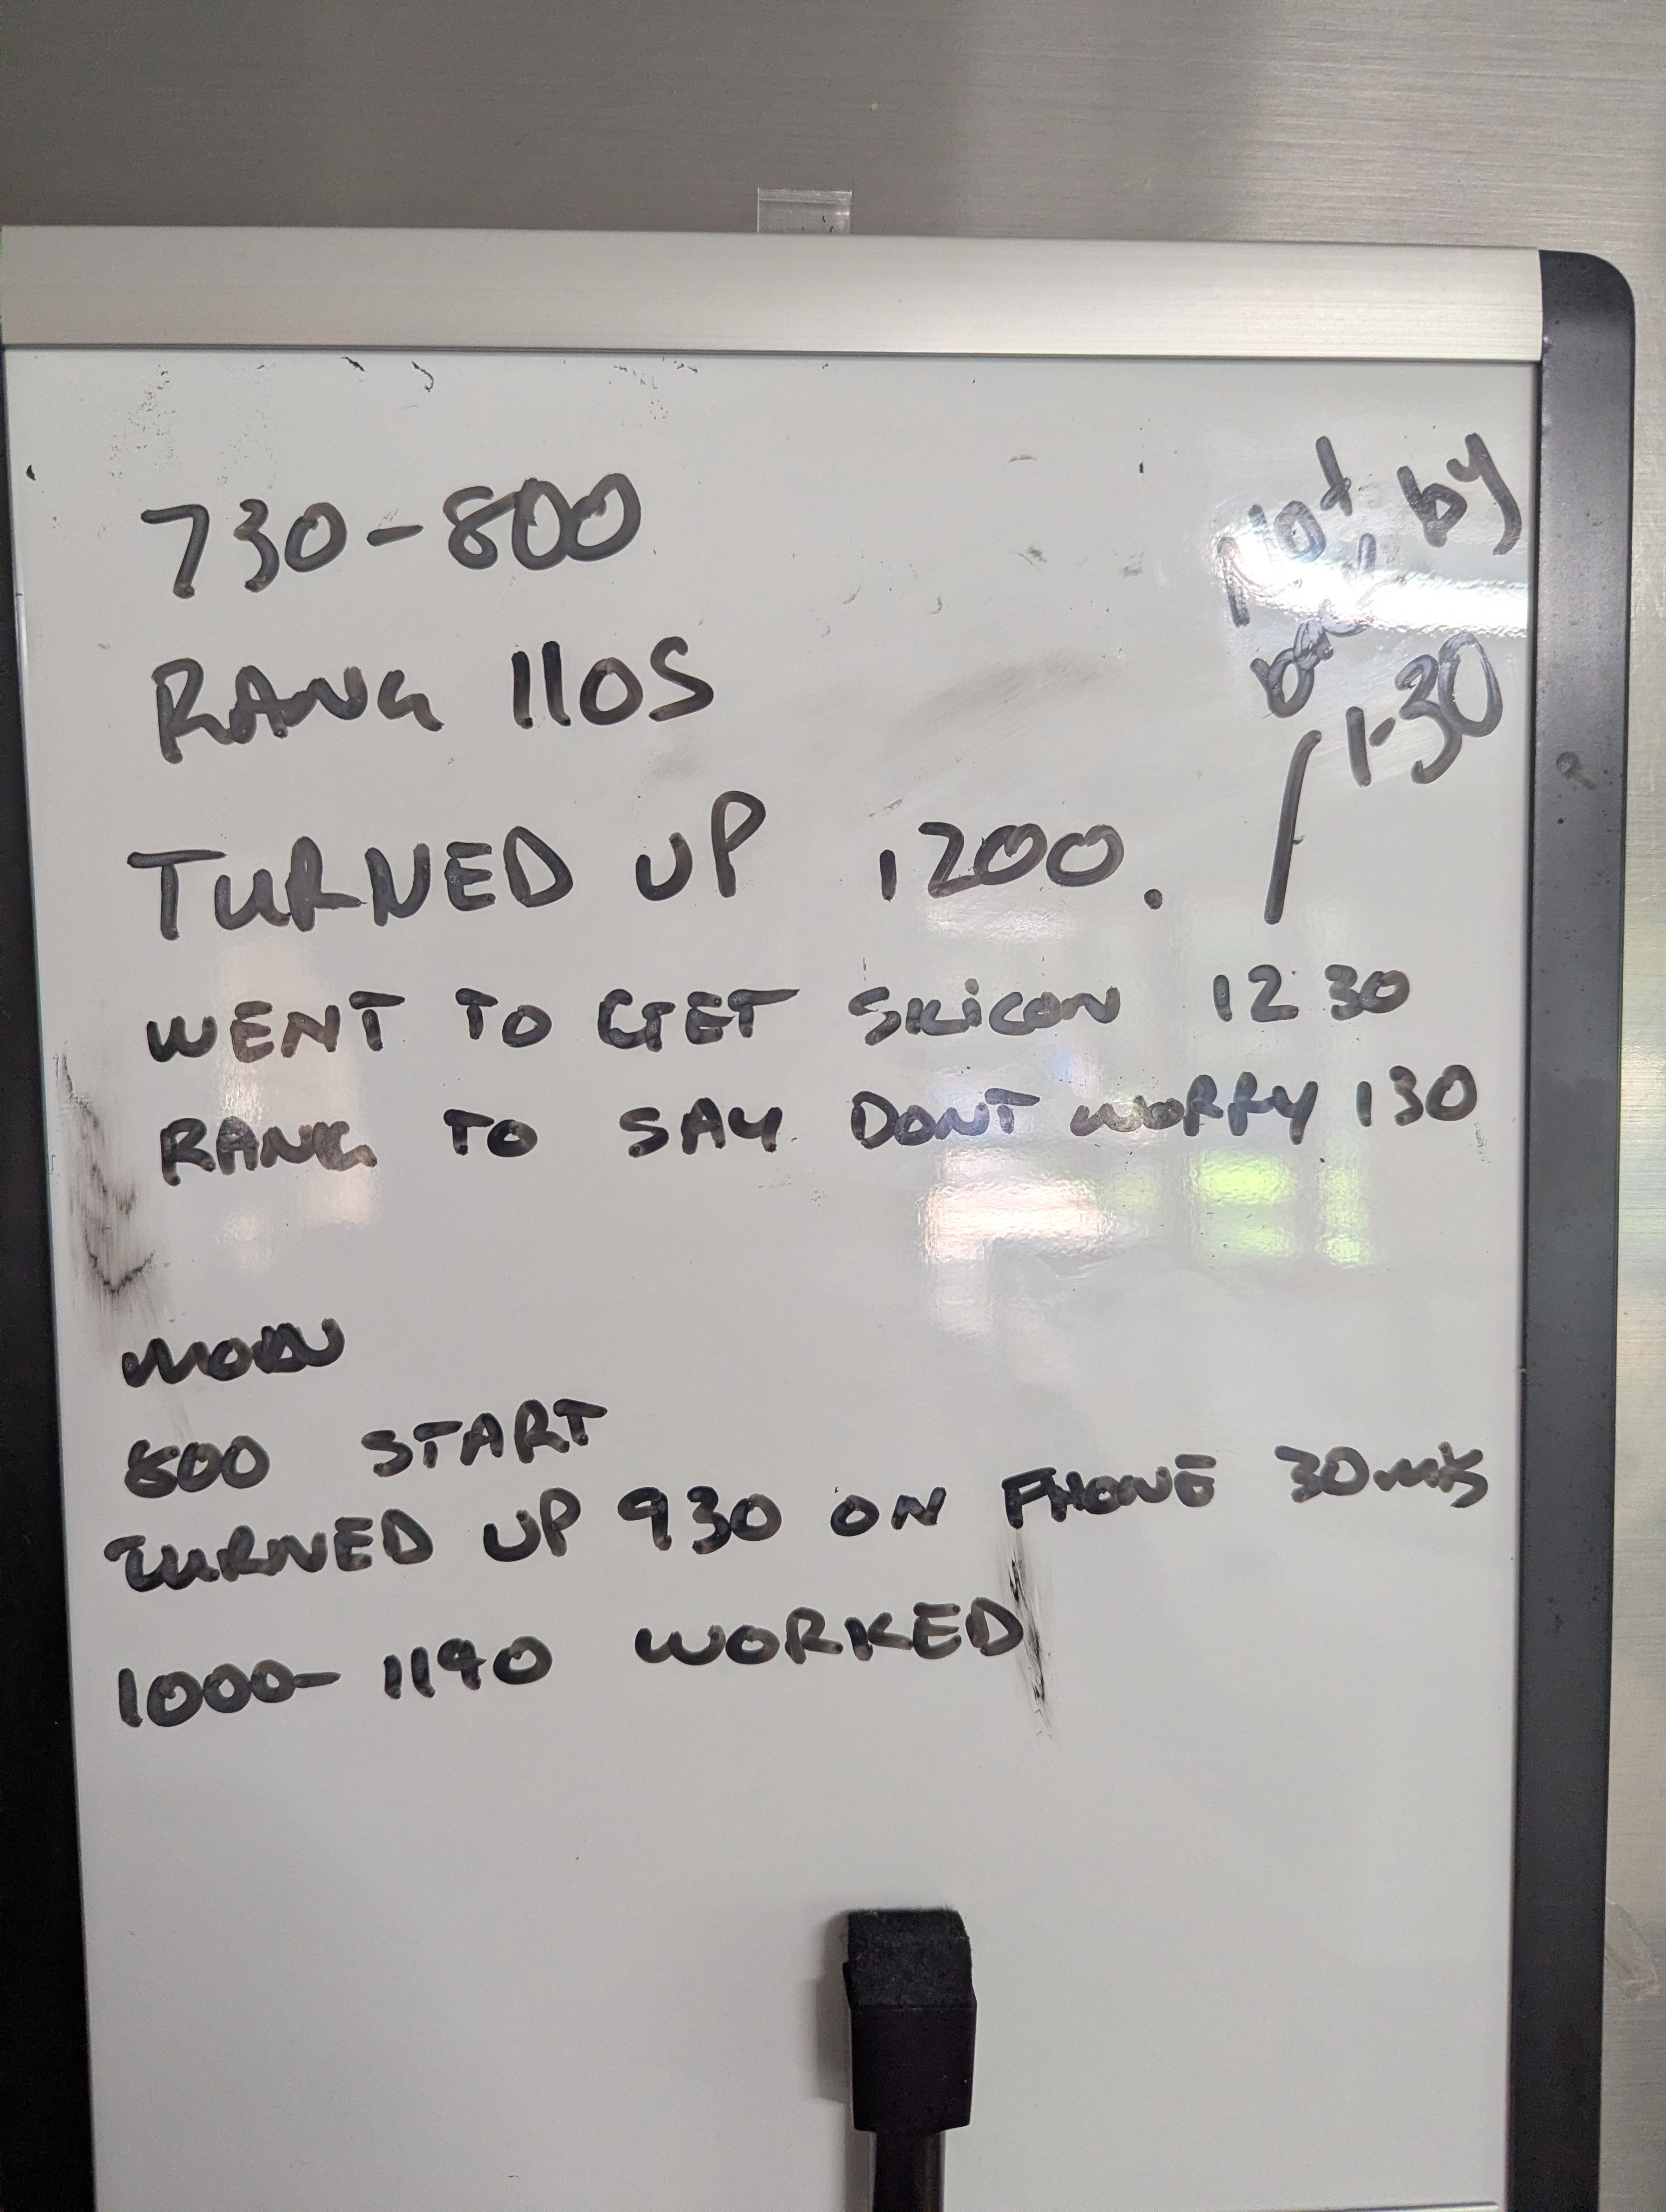 730-800
Not by
back
1-30
RANG 1105
TURNED UP 1200.
WENT TO GET SILICON 1230
RANG TO SAY DONT WORRY 130
MON
800 START
TURNED UP 930 ON PHONE 30
1000-1140 WORKED